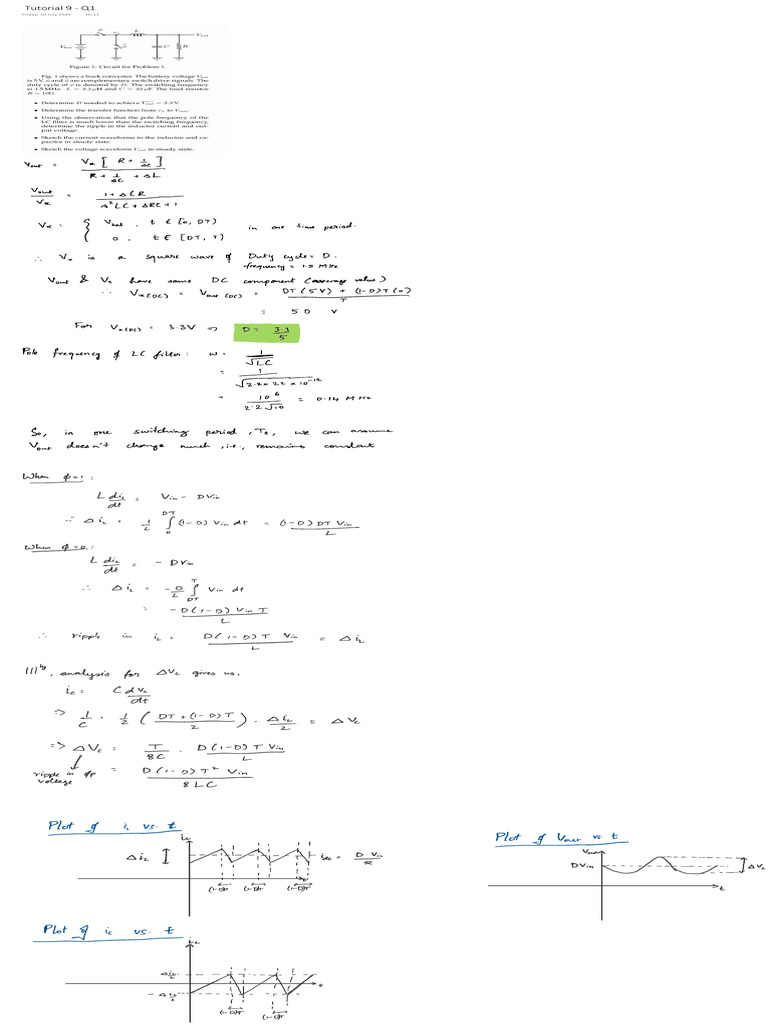 Tutorial 9 - Q1
Friday, 10 July 2020 16:21
Figure 1: Circuit for Problem 1.
Fig. 1 shows a buck converter. The battery voltage
is 5V. φ and φ̅ are complementary switch drive signals. The
duty cycle of φ is denoted by D. The switching frequency
is 1.5MHz. L = 2.2μH and C = 22μF. The load resistor
R = 10Ω.
• Determine D needed to achieve = 3.3V.
• Determine the transfer function from vₓ to
• Using the observation that the pole frequency of the
LC filter is much lower than the switching frequency,
determine the ripple in the inductor current and output voltage.
• Sketch the current waveforms in the inductor and capacitor in steady state.
• Sketch the voltage waveform in steady state.
Vout = Vx [ R + 1/sC ] / R + 1/sC + sL
Vout / Vx = 1 + sCR / s²LC + sRC + 1
Vx = { Vbat, t ∈ [0, DT) in one time period.
0, t ∈ [DT, T)
∴ Vx is a square wave of Duty cycle = D.
frequency = 1.5 MHz
Vout & Vx have same DC component (average value)
∴ Vx(DC) = Vout (DC) = DT (5V) + (1-D)T(0) / T
= 5D V
For Vx(DC) = 3.3V ⇒ D = 3.3/5
Pole frequency of LC filter: ω = 1/√LC
= 1/√2.2×22×10⁻¹²
= 10⁶/2.2√10 = 0.14 MHz
So, in one switching period, Ts, we can assume
Vout doesn't change much, i.e., remains constant
When φ=1:
L diL/dt = Vin - DVin
∴ ΔiL = 1/L ∫₀^DT (1-D) Vin dt = (1-D) DT Vin / L
When φ=0:
L diL/dt = - DVin
∴ ΔiL = -D/L ∫_DT^T Vin dt
= -D(1-D) Vin T / L
∴ ripple in iL = D(1-D)T Vin / L = ΔiL
|||ly, analysis for ΔVc gives us,
ic = C dVc/dt
⇒ 1/C · 1/2 ( DT+(1-D)T / 2 ) · ΔiL/2 = ΔVc
⇒ ΔVc = T/8C · D(1-D)T Vin / L
ripple in o/p voltage = D(1-D)T² Vin / 8LC
Plot of iL vs. t
iL
ΔiL
iDC = D·Vin / R
(1-D)T (1-D)T (1-D)T
t
Plot of Vout vs t
Vout
DVin
ΔVc
t
Plot of ic vs. t
ΔiL/2
-ΔiL/2
t
(1-D)T (1-D)T